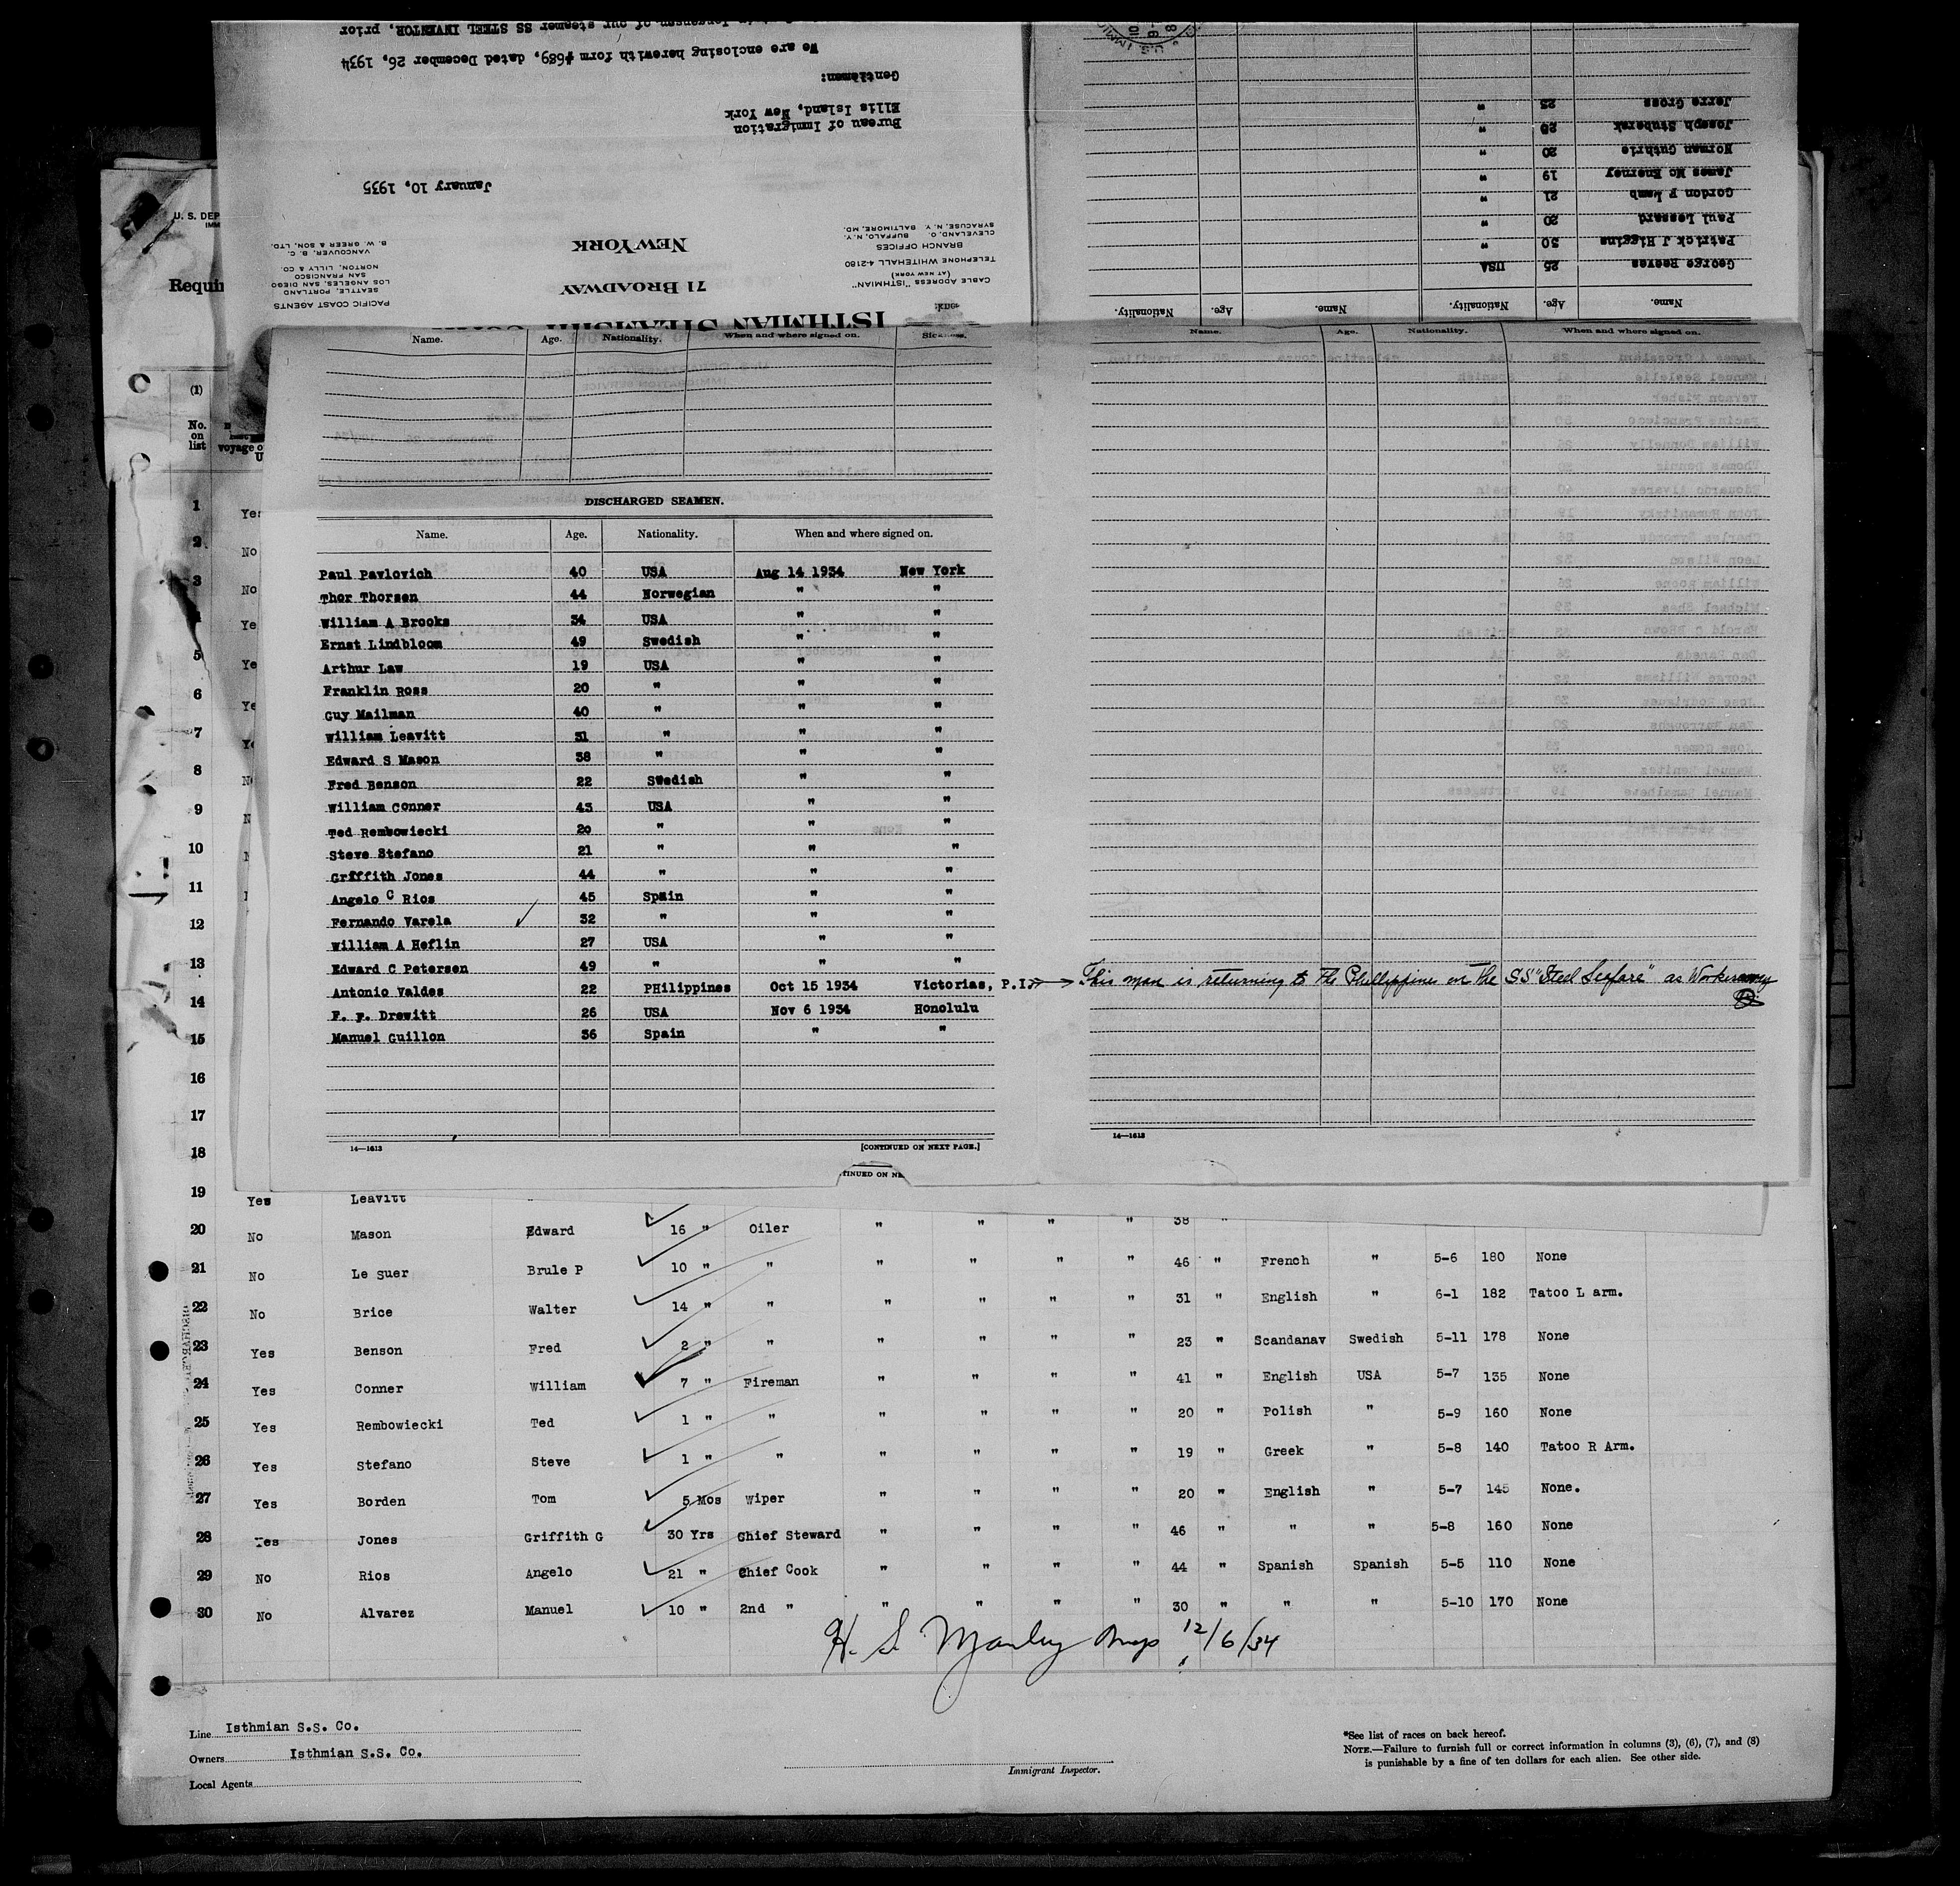 Captain Jorgensen of our steamer SS STEEL INVENTOR, prior
We are enclosing herewith form #689, dated December 26, 1934
Gentlemen:
Ellis Island, New York
Bureau of Immigration
January 10, 1935
NEW YORK
71 BROADWAY
ISTHMIAN STEAMSHIP
CABLE ADDRESS "ISTHMIAN"
(AT NEW YORK)
TELEPHONE WHITEHALL 4-2180
BRANCH OFFICES
CLEVELAND, O. BUFFALO, N.Y.
SYRACUSE, N. Y. BALTIMORE, MD.
PACIFIC COAST AGENTS
SEATTLE, PORTLAND
LOS ANGELES, SAN DIEGO
SAN FRANCISCO
NORTON, LILLY & CO.
VANCOUVER, B. C.
B. W. GREER & SON, LTD.
Name. Age. Nationality. Name. Age. Nationality.
George Reeves 25 USA
Patrick J Higgins 30 "
Paul Lessard 20 "
Gordon F Lamb 21 "
James Mc Enerney 19 "
Norman Guthrie 20 "
Joseph Stuberak "
Jerre Gross "
U. S. DEP
IMM
Requir
(1)
No. on list
voyage o
Name. Age. Nationality. When and where signed on. Sickness.
Name. Age. Nationality. When and where signed on.
DISCHARGED SEAMEN.
Name. Age. Nationality. When and where signed on.
Paul Pavlovich 40 USA Aug 14 1934 New York
Thor Thorsen 44 Norwegian " "
William A Brooks 34 USA " "
Ernst Lindbloom 49 Swedish " "
Arthur Law 19 USA " "
Franklin Ross 20 " " "
Guy Mailman 40 " " "
William Leavitt 31 " " "
Edward S Mason 38 " " "
Fred Benson 22 Swedish " "
William Conner 43 USA " "
Ted Rembowiecki 20 " " "
Steve Stefano 21 " " "
Griffith Jones 44 " " "
Angelo C Rios 45 Spain " "
Fernando Varela 32 " " "
William A Heflin 27 USA " "
Edward C Petersen 49 " " "
Antonio Valdes 22 PHilippines Oct 15 1934 Victorias, P.I. This man is returning to the Phillippines on the SS "Steel Seafare" as Workaway
F. F. Drewitt 26 USA Nov 6 1934 Honolulu
Manuel Guillon 36 Spain " "
14—1613 [CONTINUED ON NEXT PAGE.]
14—1613
TINUED ON NE
1 Yes
2 No
3 No
4 Ye
5 Ye
6 Ye
7
8
9
10
11
12
13
14
15
16
17
18
19 Yes Leavitt
20 No Mason Edward 16 " Oiler " " " " 38 "
21 No Le Suer Brule P 10 " " " " " " 46 " French " 5-6 180 None
22 No Brice Walter 14 " " " " " " 31 " English " 6-1 182 Tatoo L arm.
23 Yes Benson Fred 2 " " " " " " 23 " Scandanav Swedish 5-11 178 None
24 Yes Conner William 7 " Fireman " " " " 41 " English USA 5-7 135 None
25 Yes Rembowiecki Ted 1 " " " " " " 20 " Polish " 5-9 160 None
26 Yes Stefano Steve 1 " " " " " " 19 " Greek " 5-8 140 Tatoo R Arm.
27 Yes Borden Tom 5 Mos Wiper " " " " 20 " English " 5-7 145 None.
28 Yes Jones Griffith G 30 Yrs Chief Steward " " " " 46 " " " 5-8 160 None
29 No Rios Angelo 21 " Chief Cook " " " " 44 " Spanish Spanish 5-5 110 None
30 No Alvarez Manuel 10 " 2nd " " " " " 30 " " " 5-10 170 None
H. S. Manley 12/6/34
Line Isthmian S.S. Co.
Owners Isthmian S.S. Co.
Local Agents
Immigrant Inspector.
*See list of races on back hereof.
NOTE.—Failure to furnish full or correct information in columns (3), (6), (7), and (8)
is punishable by a fine of ten dollars for each alien. See other side.